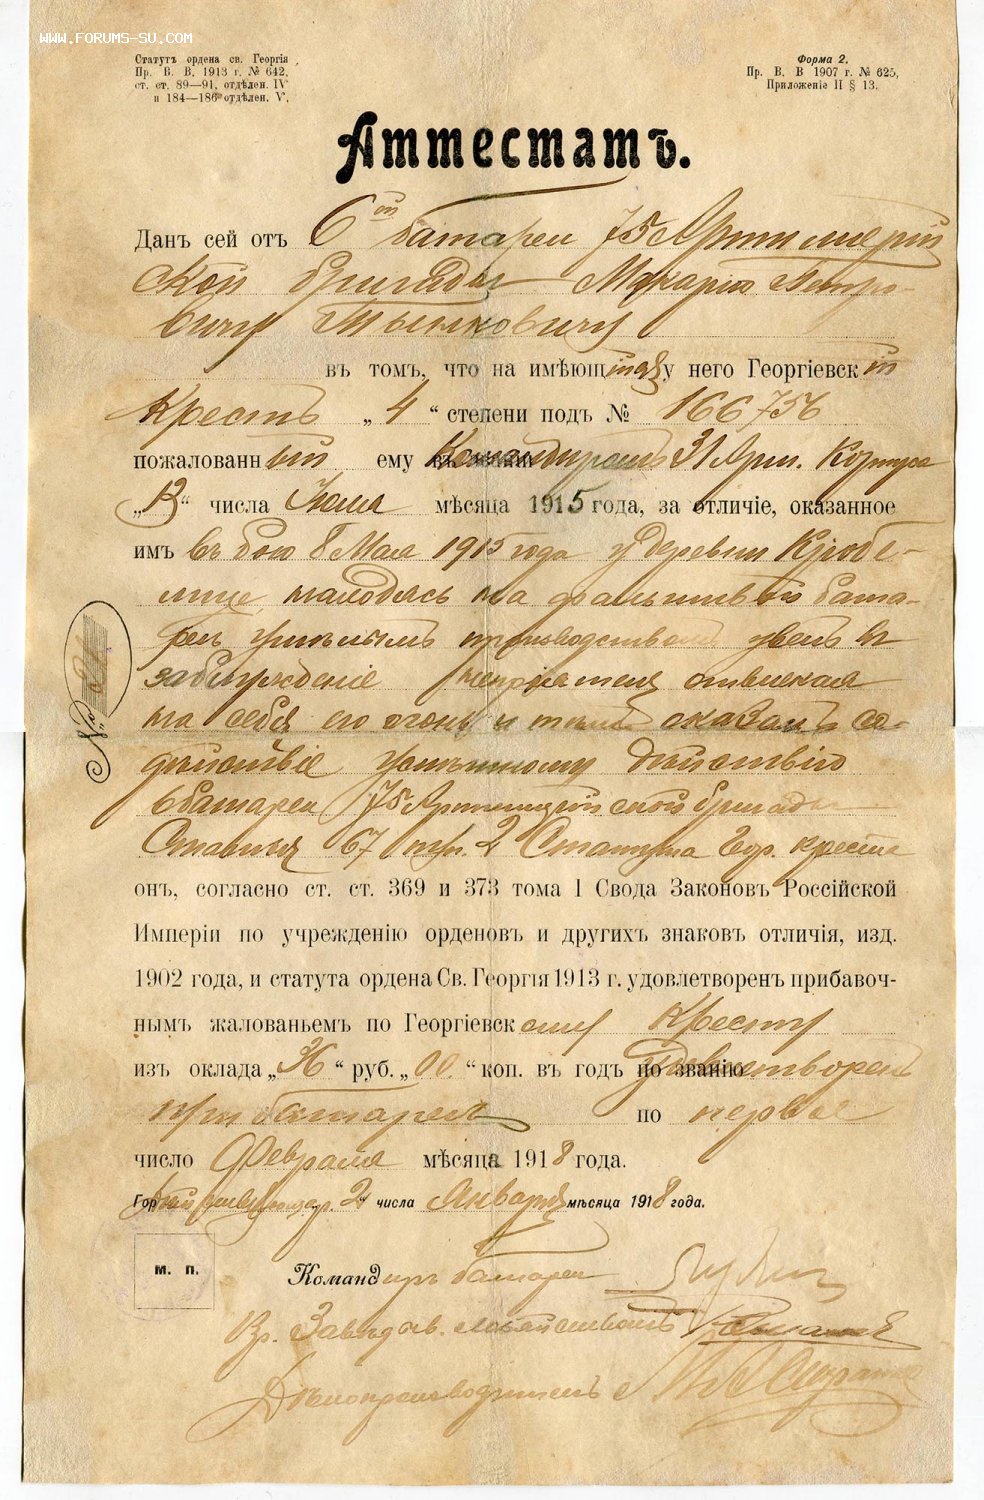 WWW.FORUMS-SU.COM
Статутъ ордена св. Георгія
Пр. В. В. 1913 г. № 642,
ст. ст. 89—91, отдѣлен. IV
и 184—186 отдѣлен. V.
Форма 2.
Пр. В. В 1907 г. № 625,
Приложеніе II § 13.
Аттестатъ.
Данъ сей отъ 6ой батареи 75 Артиллерій
ской бригады Макарію Петро-
вичу
въ томъ, что на имѣющійся у него Георгіевскій
Крестъ „4“ степени подъ № 166756
пожалованный ему Командиромъ 31 Арм. Корпуса
„13“ числа Іюля мѣсяца 1915 года, за отличіе, оказанное
имъ въ бою 8 Мая 1915 года у деревни
находясь на фальшивой бата-
реѣ, умѣлымъ производствомъ ввелъ въ
заблужденіе непріятеля отвлекая
на себя его огонь и тѣмъ оказалъ со-
дѣйствіе успѣшному дѣйствію
6 батареи 75 Артиллерійской бригады
Статья 67 пун. 2 Статута Геор. креста
онъ, согласно ст. ст. 369 и 373 тома I Свода Законовъ Россійской
Имперіи по учрежденію орденовъ и другихъ знаковъ отличія, изд.
1902 года, и статута ордена Св. Георгія 1913 г. удовлетворенъ прибавоч-
нымъ жалованьемъ по Георгіевскому Кресту
изъ оклада „36“ руб. „00“ коп. въ годъ по званію удовлетворенъ
при батареѣ по первое
число Февраля мѣсяца 1918 года.
2 числа Января мѣсяца 1918 года.
М. П.
Командиръ батареи
Вр. Завѣдыв. хозяйствомъ
Дѣлопроизводитель
№